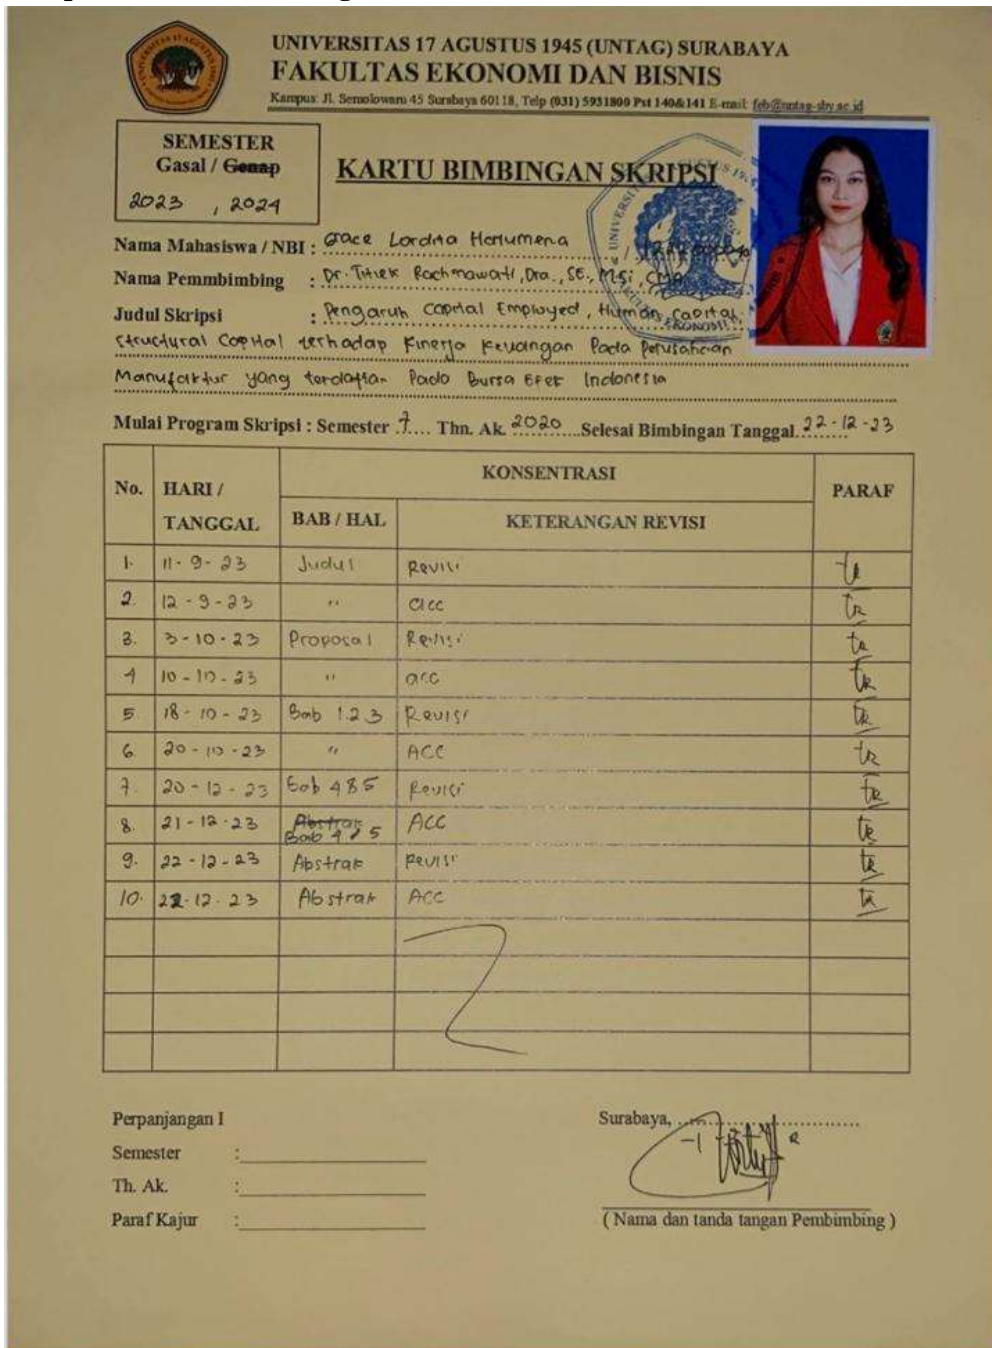 UNIVERSITAS 17 AGUSTUS 1945 (UNTAG) SURABAYA
FAKULTAS EKONOMI DAN BISNIS
Kampus: Jl. Semolowaru 45 Surabaya 60118, Telp (031) 5931800 Pst 140&141 E-mail: feb@untag-sby.ac.id
SEMESTER
Gasal / Genap
2023 , 2024
KARTU BIMBINGAN SKRIPSI
Nama Mahasiswa / NBI : Grace Lordita Hariumena /
Nama Pemmbimbing : Dr. Titiek Rachmawati, Dra., SE., MSi, CMA
Judul Skripsi : Pengaruh Capital Employed, Human Capital,
Structural Capital terhadap Kinerja Keuangan Pada Perusahaan
Manufaktur yang terdaftar Pada Bursa Efek Indonesia
Mulai Program Skripsi : Semester 7 Thn. Ak. 2020 Selesai Bimbingan Tanggal 22-12-23
No. HARI / TANGGAL KONSENTRASI PARAF
BAB / HAL KETERANGAN REVISI
1. 11-9-23 Judul Revisi tr
2. 12-9-23 " acc tr
3. 3-10-23 Proposal Revisi tr
4 10-10-23 " acc tr
5. 18-10-23 Bab 1.2.3 Revisi tr
6. 20-10-23 " ACC tr
7. 20-12-23 Bab 4&5 Revisi tr
8. 21-12-23 Abstrak Bab 4&5 ACC tr
9. 22-12-23 Abstrak Revisi tr
10. 22-12-23 Abstrak ACC tr
Perpanjangan I
Semester :
Th. Ak. :
Paraf Kajur :
Surabaya,
( Nama dan tanda tangan Pembimbing )